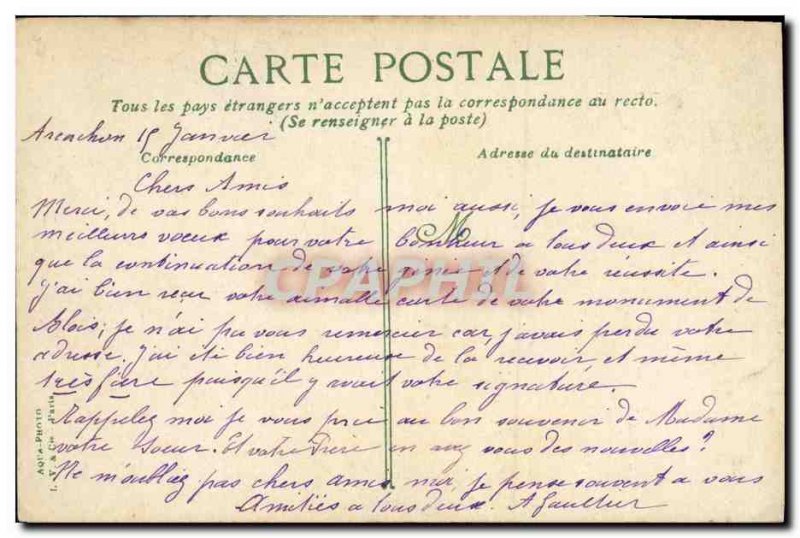 CARTE POSTALE
Tous les pays étrangers n'acceptent pas la correspondance au recto.
(Se renseigner à la poste)
Arcachon 15 Janvier
Correspondance
Adresse du destinataire
Chers Amis
Merci, de vos bons souhaits moi aussi, je vous envoie mes
meilleurs vœux pour votre bonheur a tous deux et ainsi
que la continuation de votre et de votre réussite.
J'ai bien reçu votre aimable carte de votre monument de
je n'ai pu vous remercier car, j'avais perdu votre
adresse. J'ai été bien heureuse de la recevoir, et même
très fière puisqu'il y avait votre signature.
Rappelez moi je vous prie au bon souvenir de Madame
votre Soeur. Et votre Frère en avez vous des nouvelles ?
Ne m'oubliez pas chers amis moi, je pense souvent a vous
Amitiés a tous deux. A Gaultier
AQUA-PHOTO
L. V. & Cie. d'aris
CPAPHIL